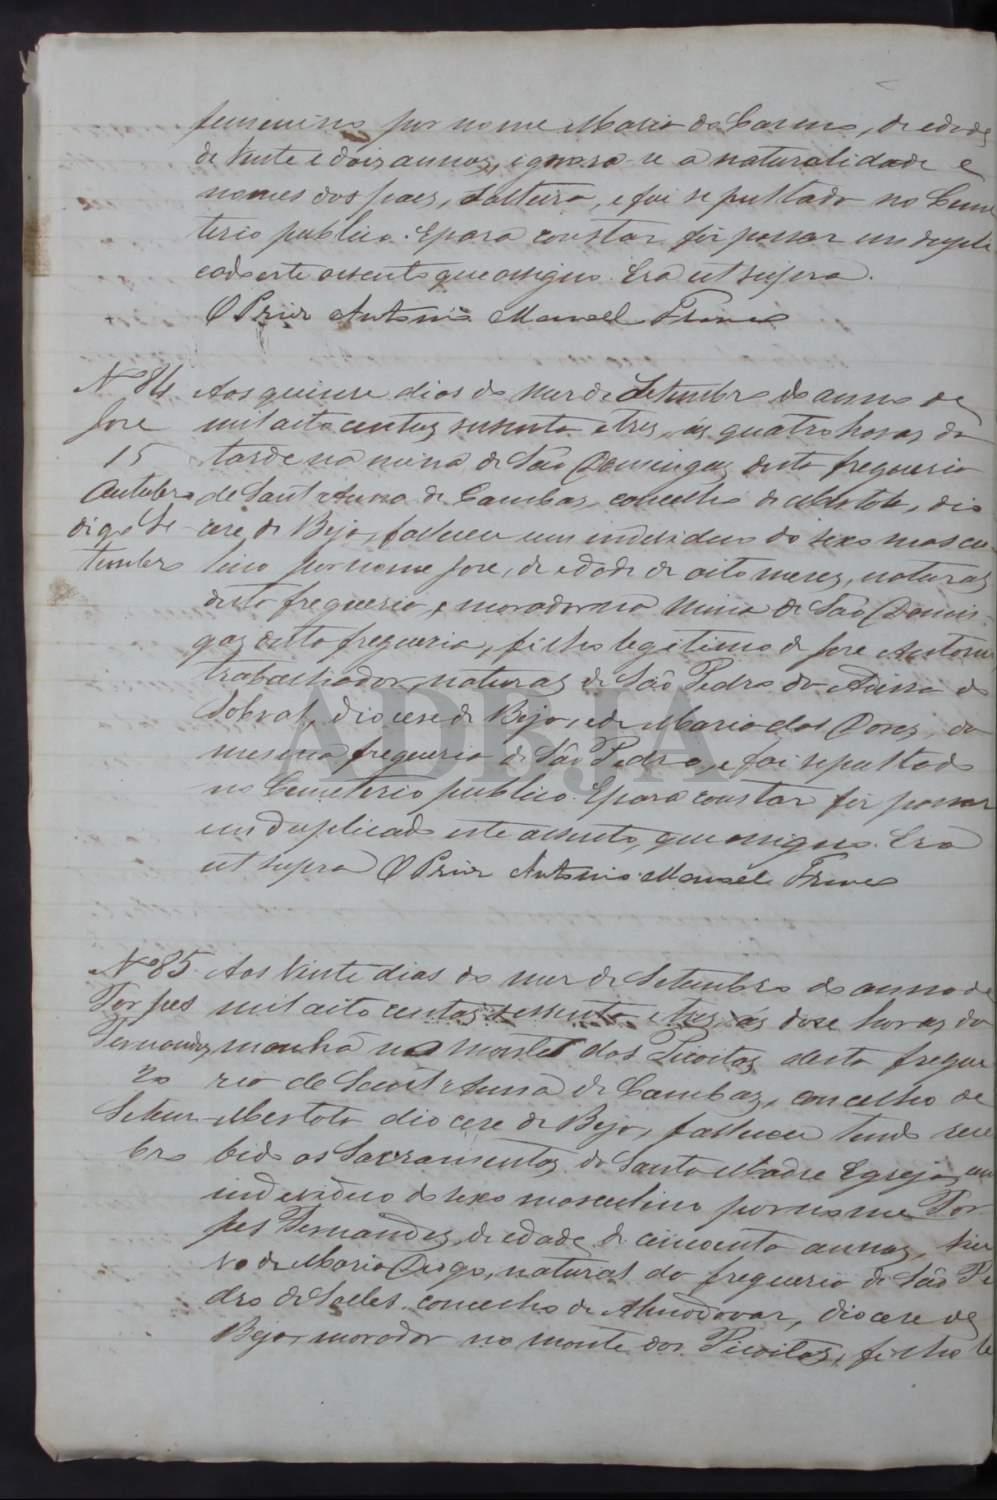 femenino por nome Maria do Carmo, de edade
de vinte e dois annos, ignora-se a naturalidade e
nomes dos paes, solteira, e foi sepultado no Ceme
terio publico. E para constar fiz passar em dupli
cado este assento que assigno. Era ut supra.
O Prior Antonio Manoel
Nº 84 Aos quinse dias do mez de Setembro do anno de
Jose mil oito centos sessenta e tres, ás quatro horas da
15 tarde na mina de São Domingos desta freguesia
Outubro de Sant'Anna de Cambas, concelho de Mertola, dio
digo Se cese de Beja, falleceu um individuo do sexo mascu
tembro lino por nome Jose, de edade de oito mezes, natural
desta freguesia, e morador na Mina de São Domin-
gos desta freguesia, filho legitimo de Jose Antonio
trabalhador, natural de São Pedro da Adissa do
Sobral, diocese de Beja, e de Maria das Dores, da
mesma freguesia de São Pedro, e foi sepultado
no Cemeterio publico. E para constar fiz passar
em duplicado este assento, que assigno. Era
ut supra O Prior Antonio Manoel
Nº 85 Aos vinte dias do mez de Setembro do anno de
Torpes mil oito centos sessenta e tres, ás dose horas da
Fernandes manhã no monte dos Picoitos desta fregue
20 sia de Sant'Anna de Cambas, concelho de
Setem Mertola diocese de Beja, falleceu tendo rece
bro bido os Sacramentos da Santa Madre Egreja, um
individuo do sexo masculino por nome Tor
pes Fernandes, de edade de cincoenta annos, viu
vo de Maria Diogo, natural da freguesia de São Pe
dro de Solles concelho de Almodovar, diocese de
Beja, morador no monte dos Picoitos, filho le